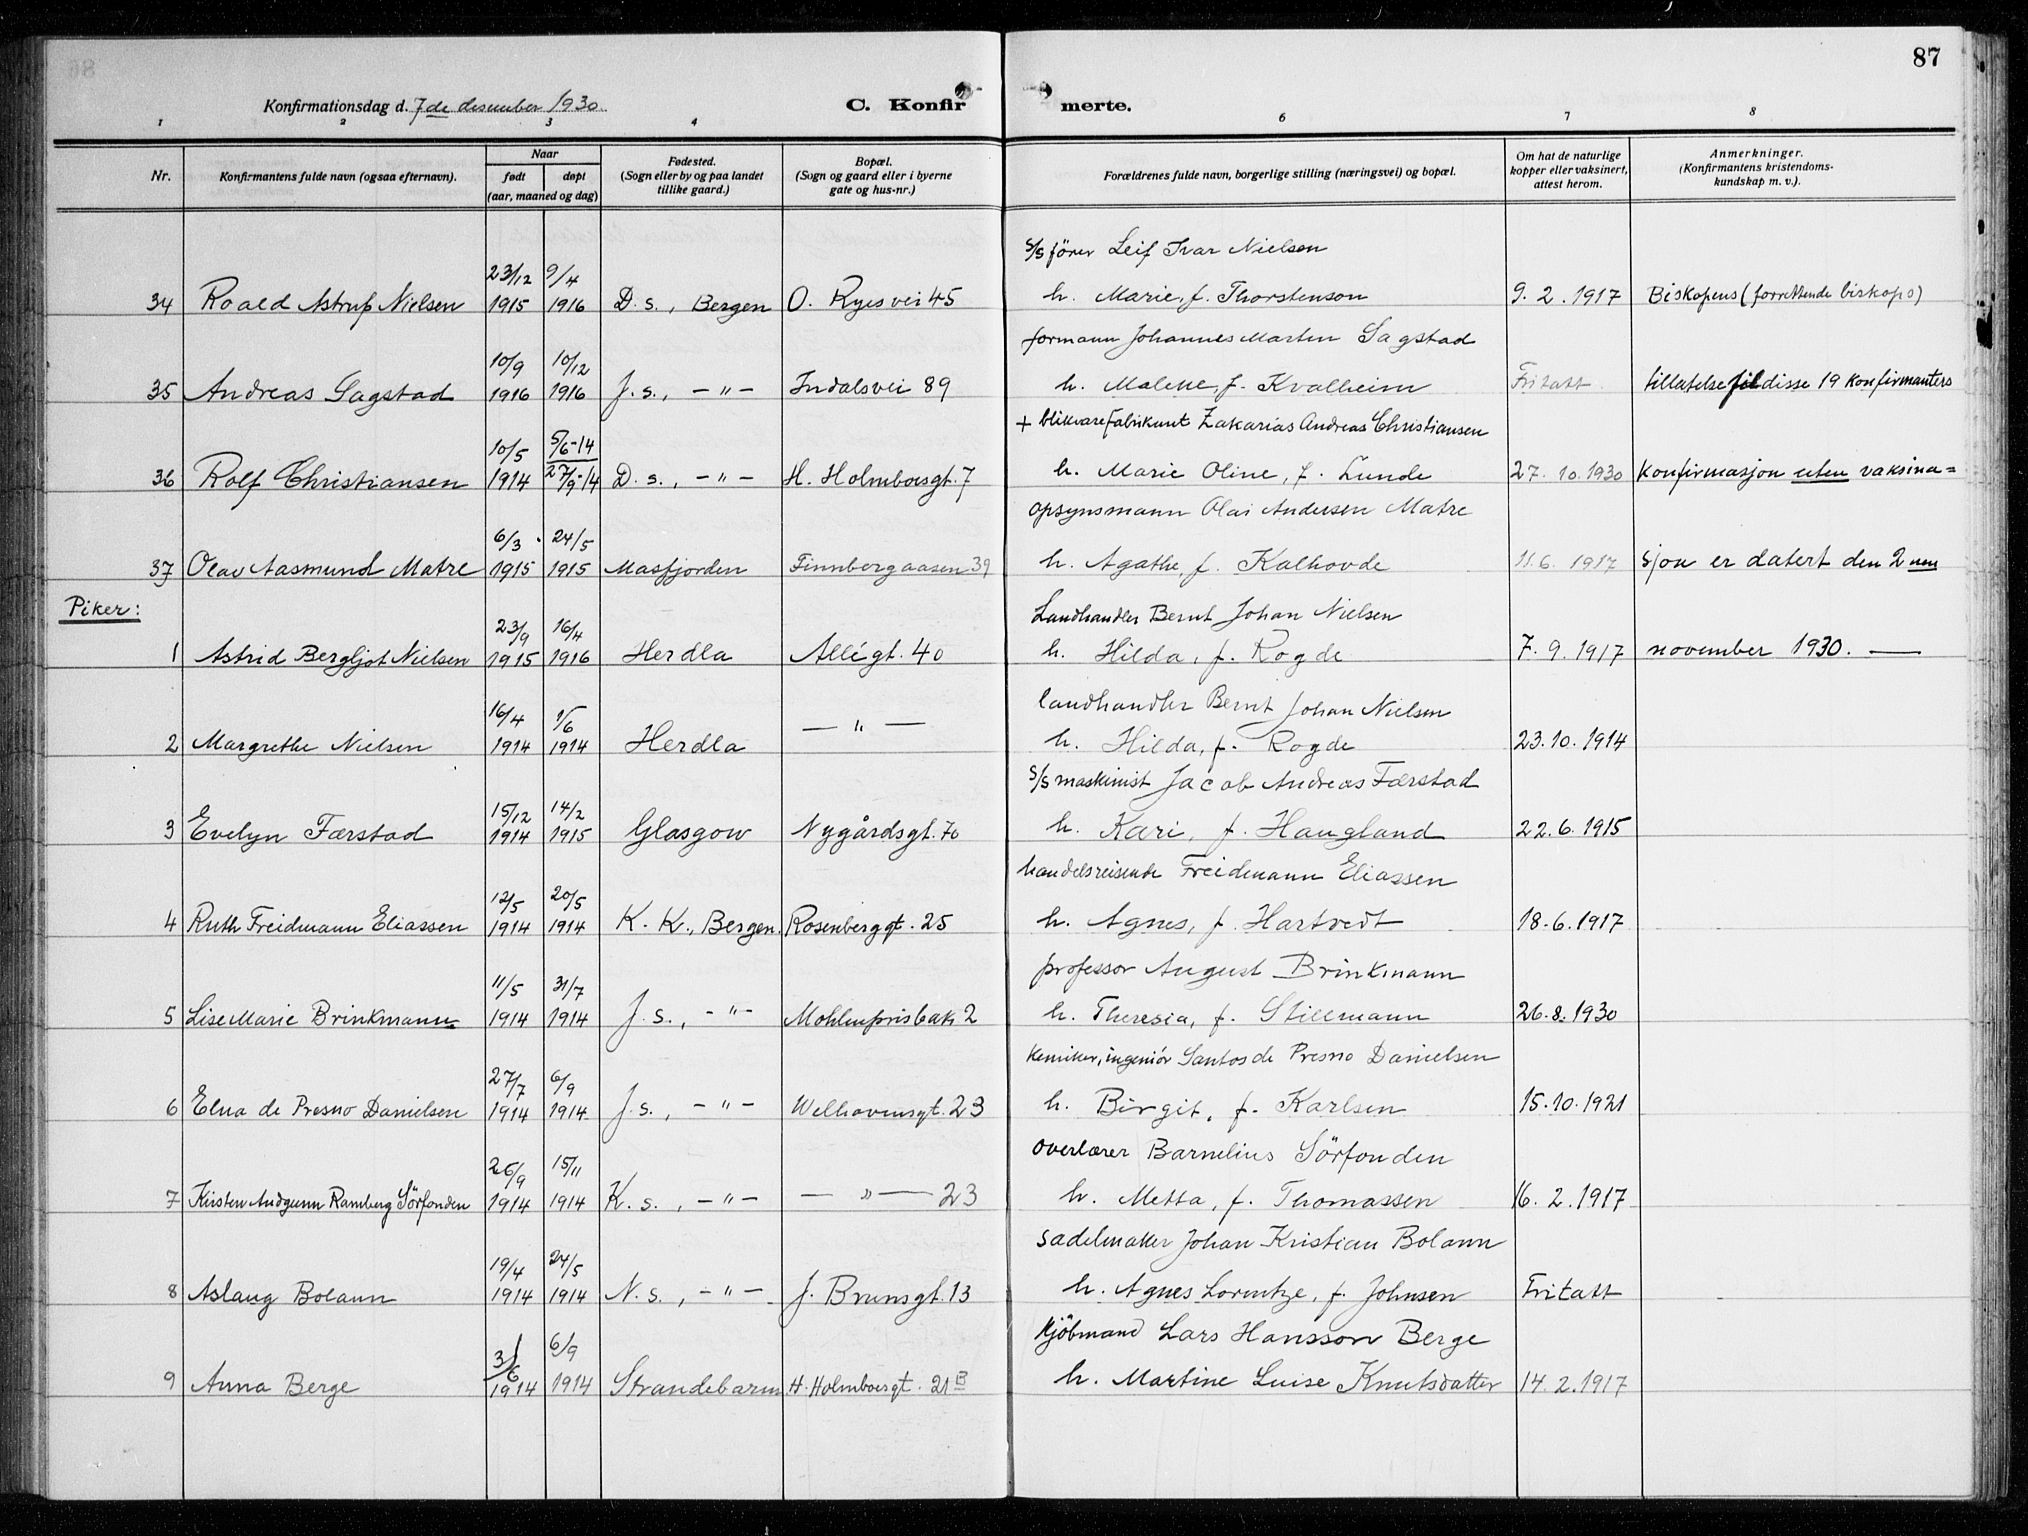 87
Konfirmationsdag d. 7de desember 1930. C. Konfirmerte.
1 2 3 4 6 7 8
Nr. Konfirmantens fulde navn (ogsaa efternavn). Naar født døpt (aar, maaned og dag) Fødested. (Sogn eller by og paa landet tillike gaard.) Bopæl. (Sogn og gaard eller i byerne gate og hus-nr.) Forældrenes fulde navn, borgerlige stilling (næringsvei) og bopæl. Om hat de naturlige kopper eller vaksinert, attest herom. Anmerkninger. (Konfirmantens kristendomskundskap m. v.).
s/s fører Leif Ivar Nielsen
23/12 9/4
34 Roald Astrup Nielsen 1915 1916 D. s., Bergen O. Ryesvei 45 h. Marie, f. Thorstenson 9. 2. 1917 Biskopens (forrettende biskops)
formann Johannes Martin Sagstad
10/9 10/12
35 Andreas Sagstad 1916 1916 J. s., — " — Indalsvei 89 h. Malene, f. Kvalheim Fritatt tillatelse til disse 19 konfirmanters
+ blikvarefabrikant Zakarias Andreas Christiansen
10/5 5/6-14
36 Rolf Christiansen 1914 27/9-14 D. s., — " — H. Holmboesgt. 7 h. Marie Oline, f. Lunde 27. 10. 1930 konfirmasjon uten vaksina=
opsynsmann Olai Andersen Matre
6/3 24/5
37 Olav Aasmund Matre 1915 1915 Masfjorden Finnbergaasen 39 h. Agathe, f. Kalhovde 11. 6. 1917 sjon er datert den 2nen
Piker:
Landhandler Bernt Johan Nielsen
23/9 16/4
1 Astrid Bergljot Nielsen 1915 1916 Herdla Allégt. 40 h. Hilda, f. Rogde 7. 9. 1917 november 1930. —
landhandler Bernt Johan Nielsen
16/4 1/6
2 Margrethe Nielsen 1914 1914 Herdla — " — h. Hilda, f. Rogde 23. 10. 1914
s/s maskinist Jacob Andreas Færstad
15/12 14/2
3 Evelyn Færstad 1914 1915 Glasgow Nygårdsgt. 70 h. Kari, f. Haugland 22. 6. 1915
handelsreisende Freidemann Eliassen
12/5 20/5
4 Ruth Freidmann Eliassen 1914 1914 K. K., Bergen. Rosenberggt. 25 h. Agnes, f. Hartvedt 18. 6. 1917
professor August Brinkmann
11/5 31/7
5 Lise Marie Brinkmann 1914 1914 J. s., — " — Møhlenprisbak. 2 h. Theresia, f. Stillmann 26. 8. 1930
kemiker, ingeniør Santos de Presno Danielsen
27/7 6/9
6 Elna de Presno Danielsen 1914 1914 J. s., — " — Welhavensgt. 23 h. Birgit, f. Karlsen 15. 10. 1921
overlærer Barnelius Sörfonden
26/9 15/11
7 Kirsten Audgunn Ramberg Sörfonden 1914 1914 K. s., — " — — " — 23 h. Metta, f. Thomassen 16. 2. 1917
sadelmaker Johan Kristian Bolann
19/4 24/5
8 Aslaug Bolann 1914 1914 N. s., — " — J. Brunsgt. 13 h. Agnes Lorentze, f. Johnsen Fritatt
Kjöbmand Lars Hansson Berge
3/6 6/9
9 Anna Berge 1914 1914 Strandebarm H. Holmboesgt. 21 B h. Martine Luise Knutsdatter 14. 2. 1917